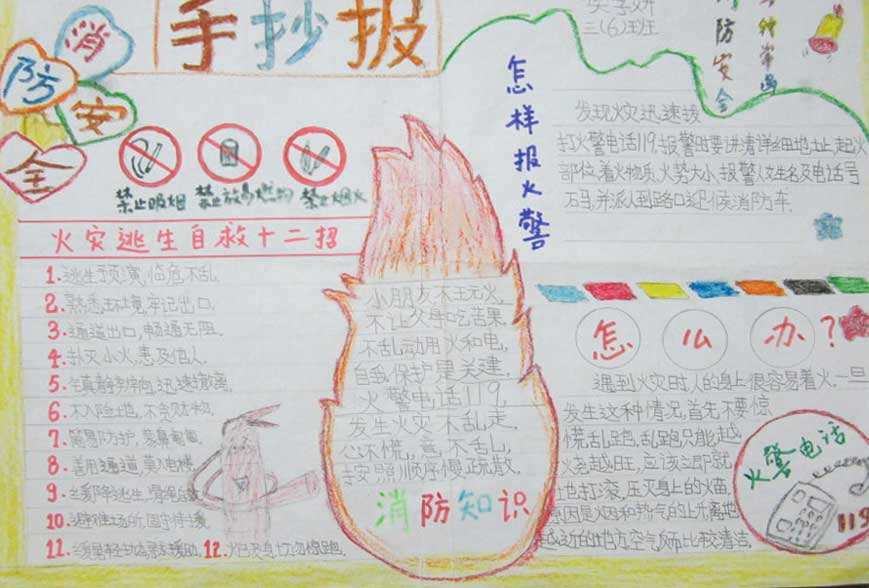 手抄报
消
防
安
全
三(6)班
防安全
禁止吸烟 禁止放易燃物 禁止烟火
火灾逃生自救十二招
1.逃生预演,临危不乱.
2.熟悉环境,牢记出口.
3.通道出口,畅通无阻.
4.扑灭小火,惠及他人.
5.
6.不入险地,不贪财物.
7.简易防护,蒙鼻匍匐.
8.善用通道,莫入电梯.
9.缓降逃生,滑绳自救.
10.避难场所,固守待援.
11.缓晃轻抛,寻求援助. 12.火已及身,切勿惊跑.
小朋友不玩火,
不让父母吃苦果,
不乱动用火和电,
自我保护是关建,
火警电话119,
发生火灾不乱走.
心不慌,,意不乱,
按照顺序慢疏散.
消防知识
怎样报火警
发现火灾迅速拨
打火警电话119.报警时要讲清详细地址,起火
部位,着火物质,火势大小,报警人姓名及电话号
码,并派人到路口迎候消防车.
怎么办?
遇到火灾时,人的身上很容易着火.一旦
发生这种情况,首先不要惊
慌乱跑,乱跑只能越
火烧越旺,应该立即就
地打滚,压灭身上的火苗.
原因是火因和热气的上先离地
越近的地方,空气反而比较清洁,
火警电话
119